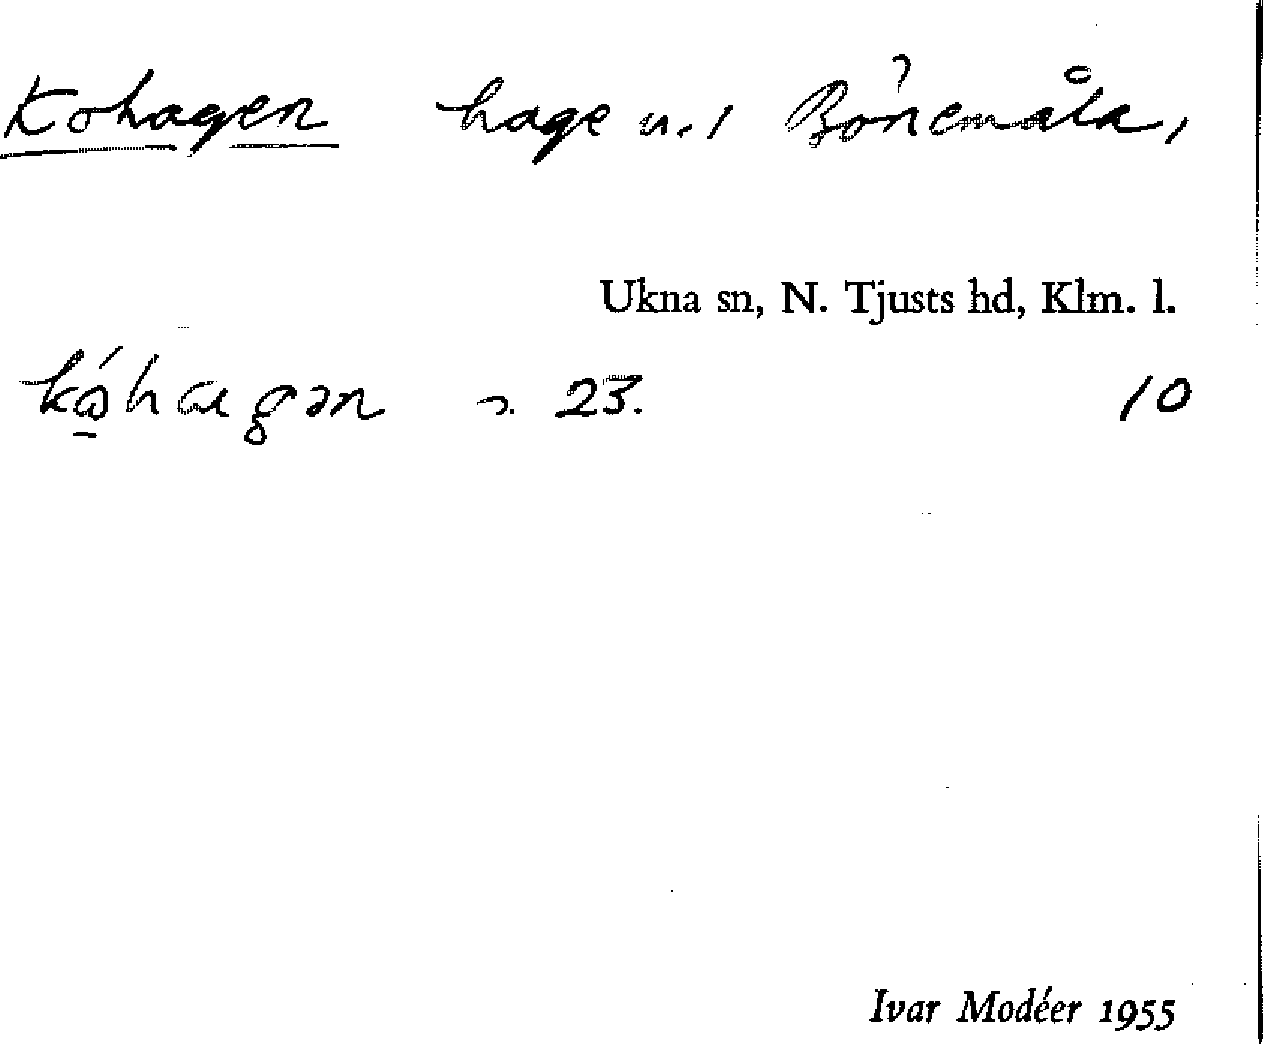 Kohagen hage u. 1 Bönemåla,
Ukna sn, N. Tjusts hd, Klm. l.
23. 10
Ivar Modéer 1955